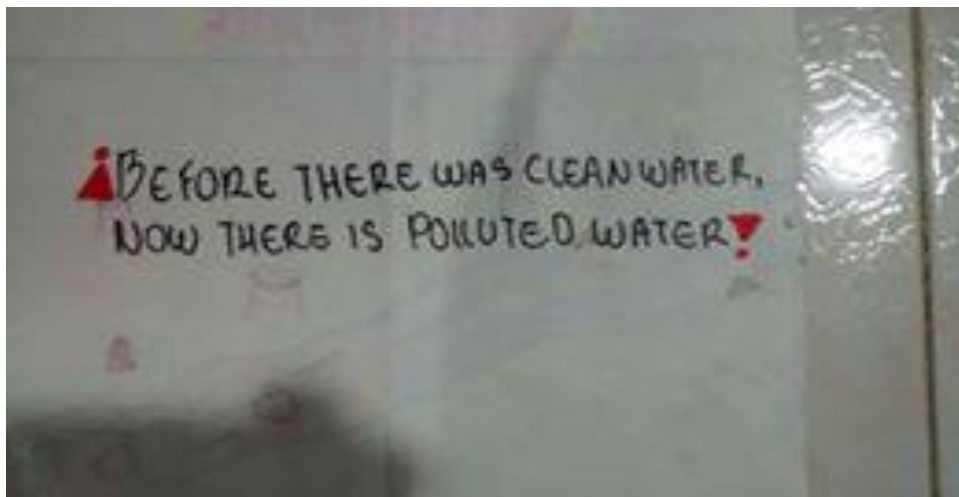 ¡BEFORE THERE WAS CLEAN WATER.
NOW THERE IS POLLUTED WATER!